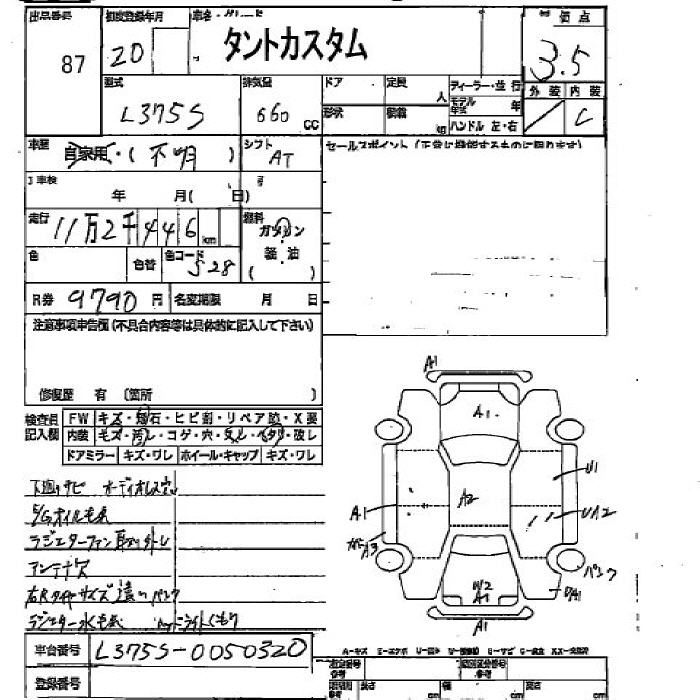 出品番号 87
初度登録年月 20
車名・グレード タントカスタム
評価点 3.5
外装 内装 C
型式 L375S
排気量 660 CC
ドア 定員 人
形状 積載 kg
ディーラー・並行
モデル年式 年
ハンドル 左・右
車歴 自家用・(不明)
シフト AT
セールスポイント(正常に機能するものに限ります)
車検 年 月( 日)
走行 11万2千446 km
燃料 ガソリン 軽油 ( )
色 色替 色コード S28
R券 9790 円 名変期限 月 日
注意事項申告欄(不具合内容等は具体的に記入して下さい)
修復歴 有 〔箇所 〕
検査員記入欄
FW キズ・飛石・ヒビ割・リペア跡・X要
内装 キズ・汚レ・コゲ・穴・スレ・ヘタリ・破レ
ドアミラー キズ・ワレ ホイール・キャップ キズ・ワレ
下廻りサビ オーディオレス穴
E/Gオイルモレ
ラジエターファン取外し
アンテナ欠
右Rタイヤサイズ違い パンク
ラジエター水モレ ヘッドライトくもり
A1
A1
A1
A2
U1
UA2
A3
パンク
U2
A1
UA1
A1
車台番号 L375S-0050320
登録番号
A-キズ E-エクボ U-凹み W-補修跡 S-サビ C-腐食 XX-交換済
長さ cm cm cm